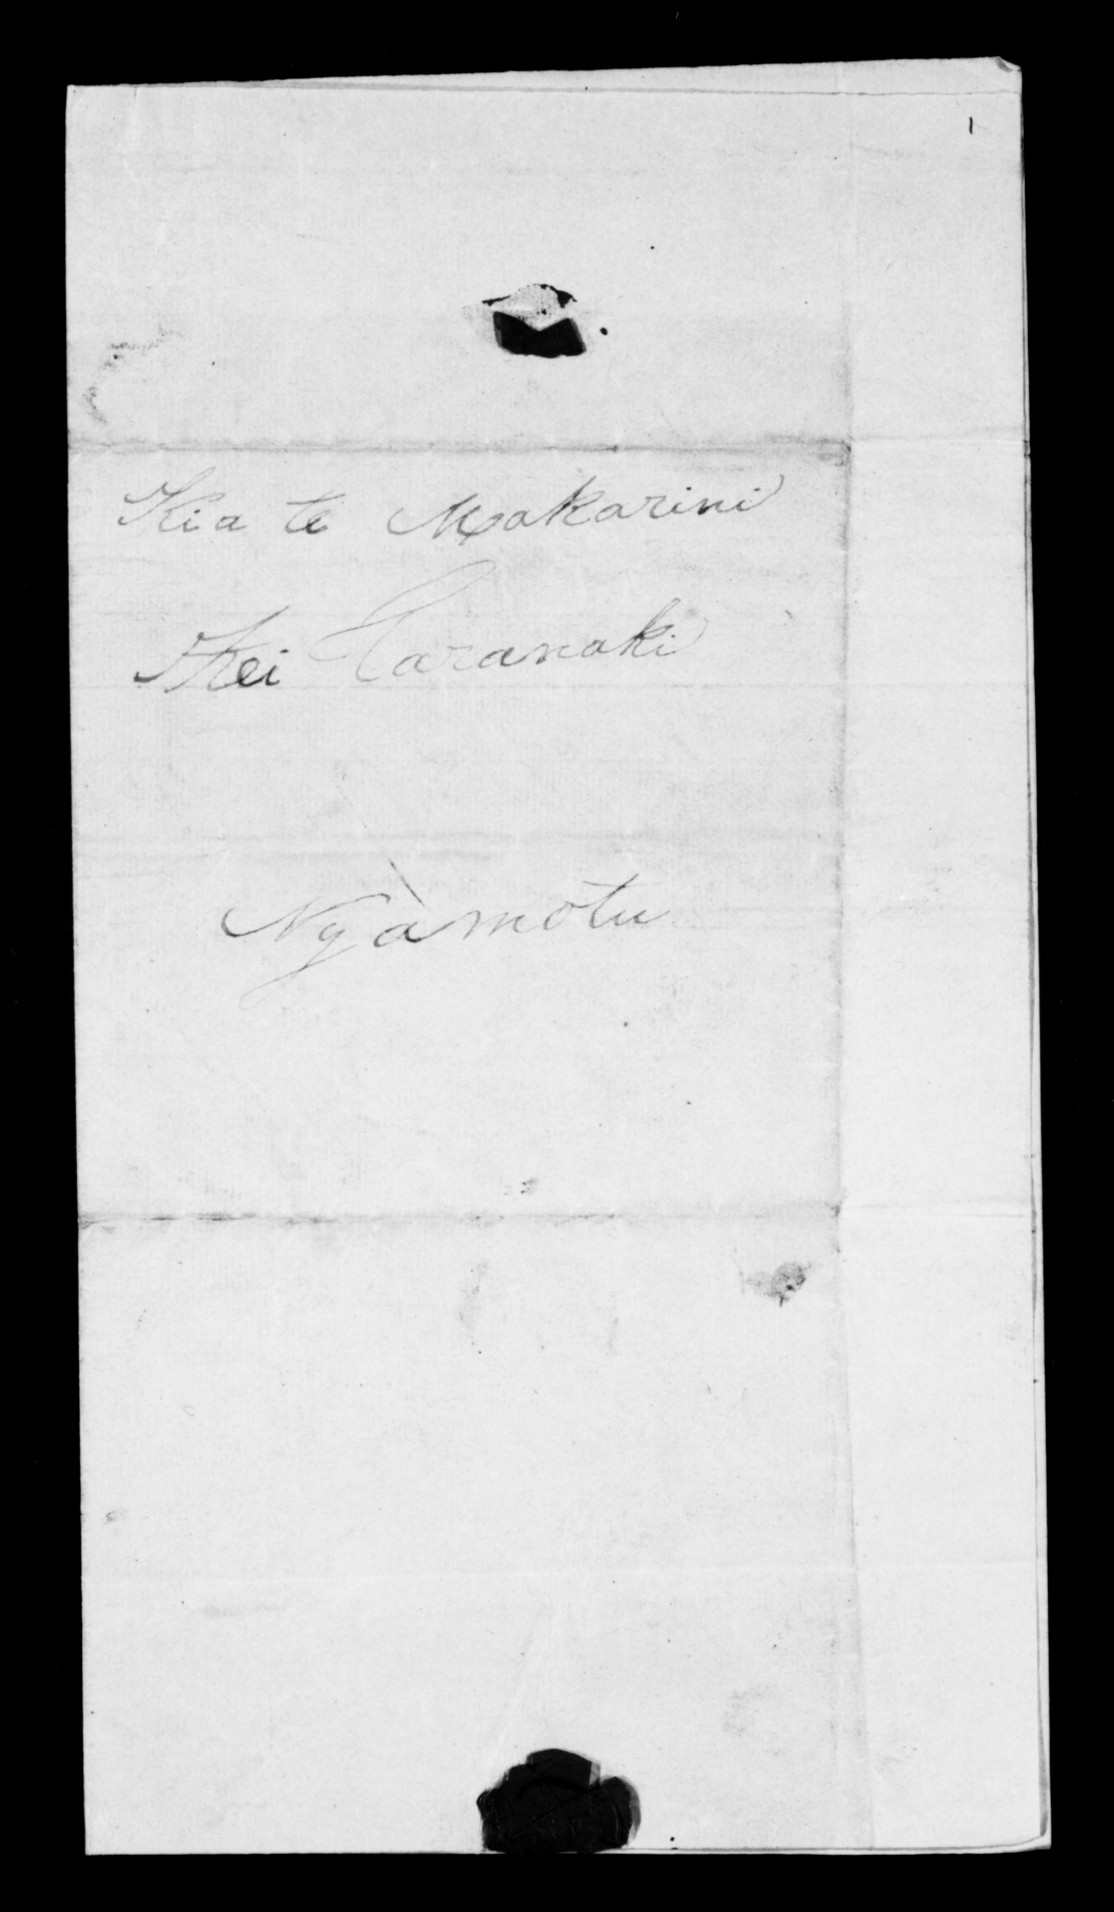 1
Kia te Makarini
Kei Taranaki
Ngamotu